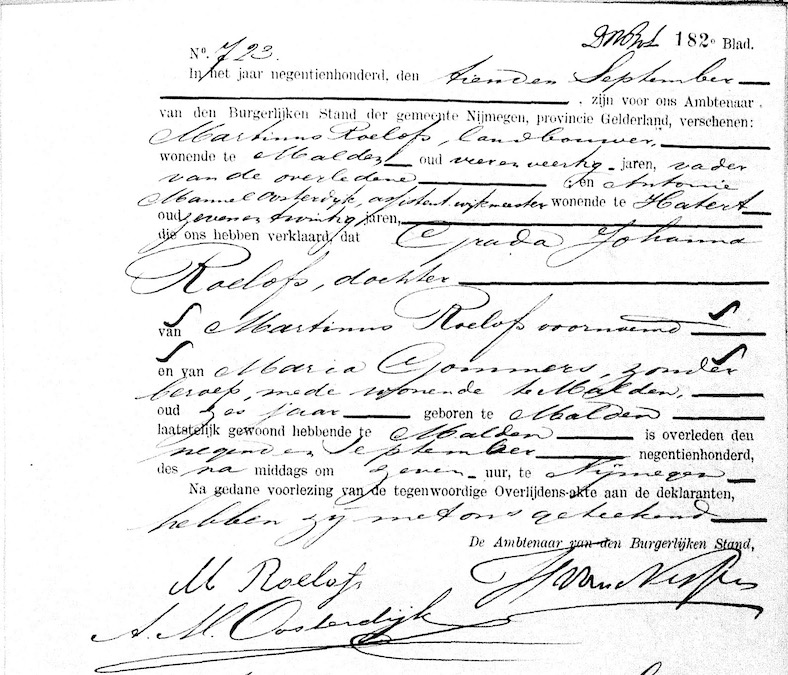 182e Blad.
No. 723.
In het jaar negentienhonderd, den tienden September
, zijn voor ons Ambtenaar
van den Burgerlijken Stand der gemeente Nijmegen, provincie Gelderland, verschenen:
Martinus Roelofs, landbouwer,
wonende te Malden oud vier en veertig jaren, vader
van de overledene en Antonie
Manuel Oosterdijk, assistent wijkmeester wonende te Hatert
oud zeven en twintig jaren,
die ons hebben verklaard, dat Grada Johanna
Roelofs, dochter
van Martinus Roelofs voornoemd
en van Maria Gommers, zonder
beroep, mede wonende te Malden,
oud zes jaar geboren te Malden
laatstelijk gewoond hebbende te Malden is overleden den
negenden September negentienhonderd,
des na middags om zeven uur, te Nijmegen
Na gedane voorlezing van de tegenwoordige Overlijdens-akte aan de deklaranten,
hebben zij met ons geteekend
De Ambtenaar van den Burgerlijken Stand,
M Roelofs
A. M. Oosterdijk